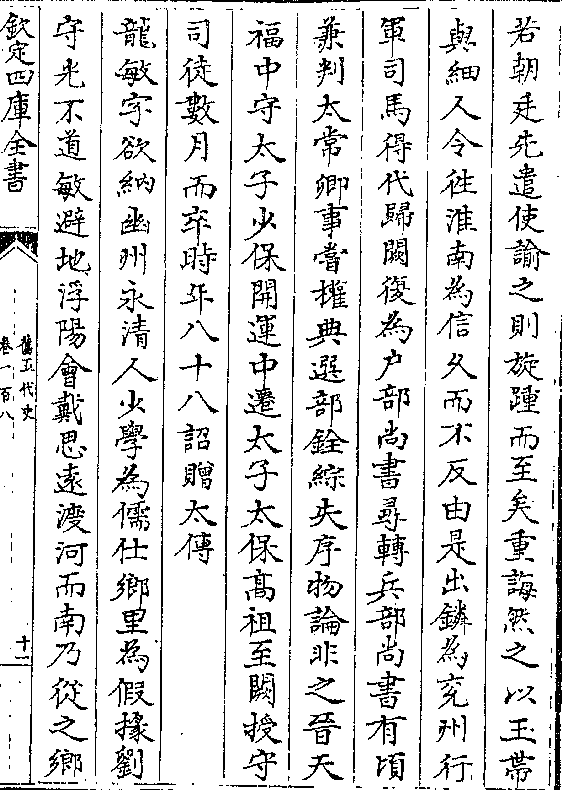 若朝廷先遣使諭之則旋踵而至矣重誨然之以玉帶
與細人令往淮南為信乆而不反由是出鏻為兖州行
軍司馬得代歸闕復為户部尚書尋轉兵部尚書有頃
兼判太常卿事嘗權典選部銓綜失序物論非之晉天
福中守太子少保開運中遷太子太保髙祖至闕授守
司徒數月而卒時年八十八詔贈太傅
龍敏字欲納幽州永清人少學為儒仕鄉里為假掾劉
守光不道敏避地浮陽會戴思遠渡河而南乃從之鄉
欽定四庫全書
舊五代史
卷一百八
十一